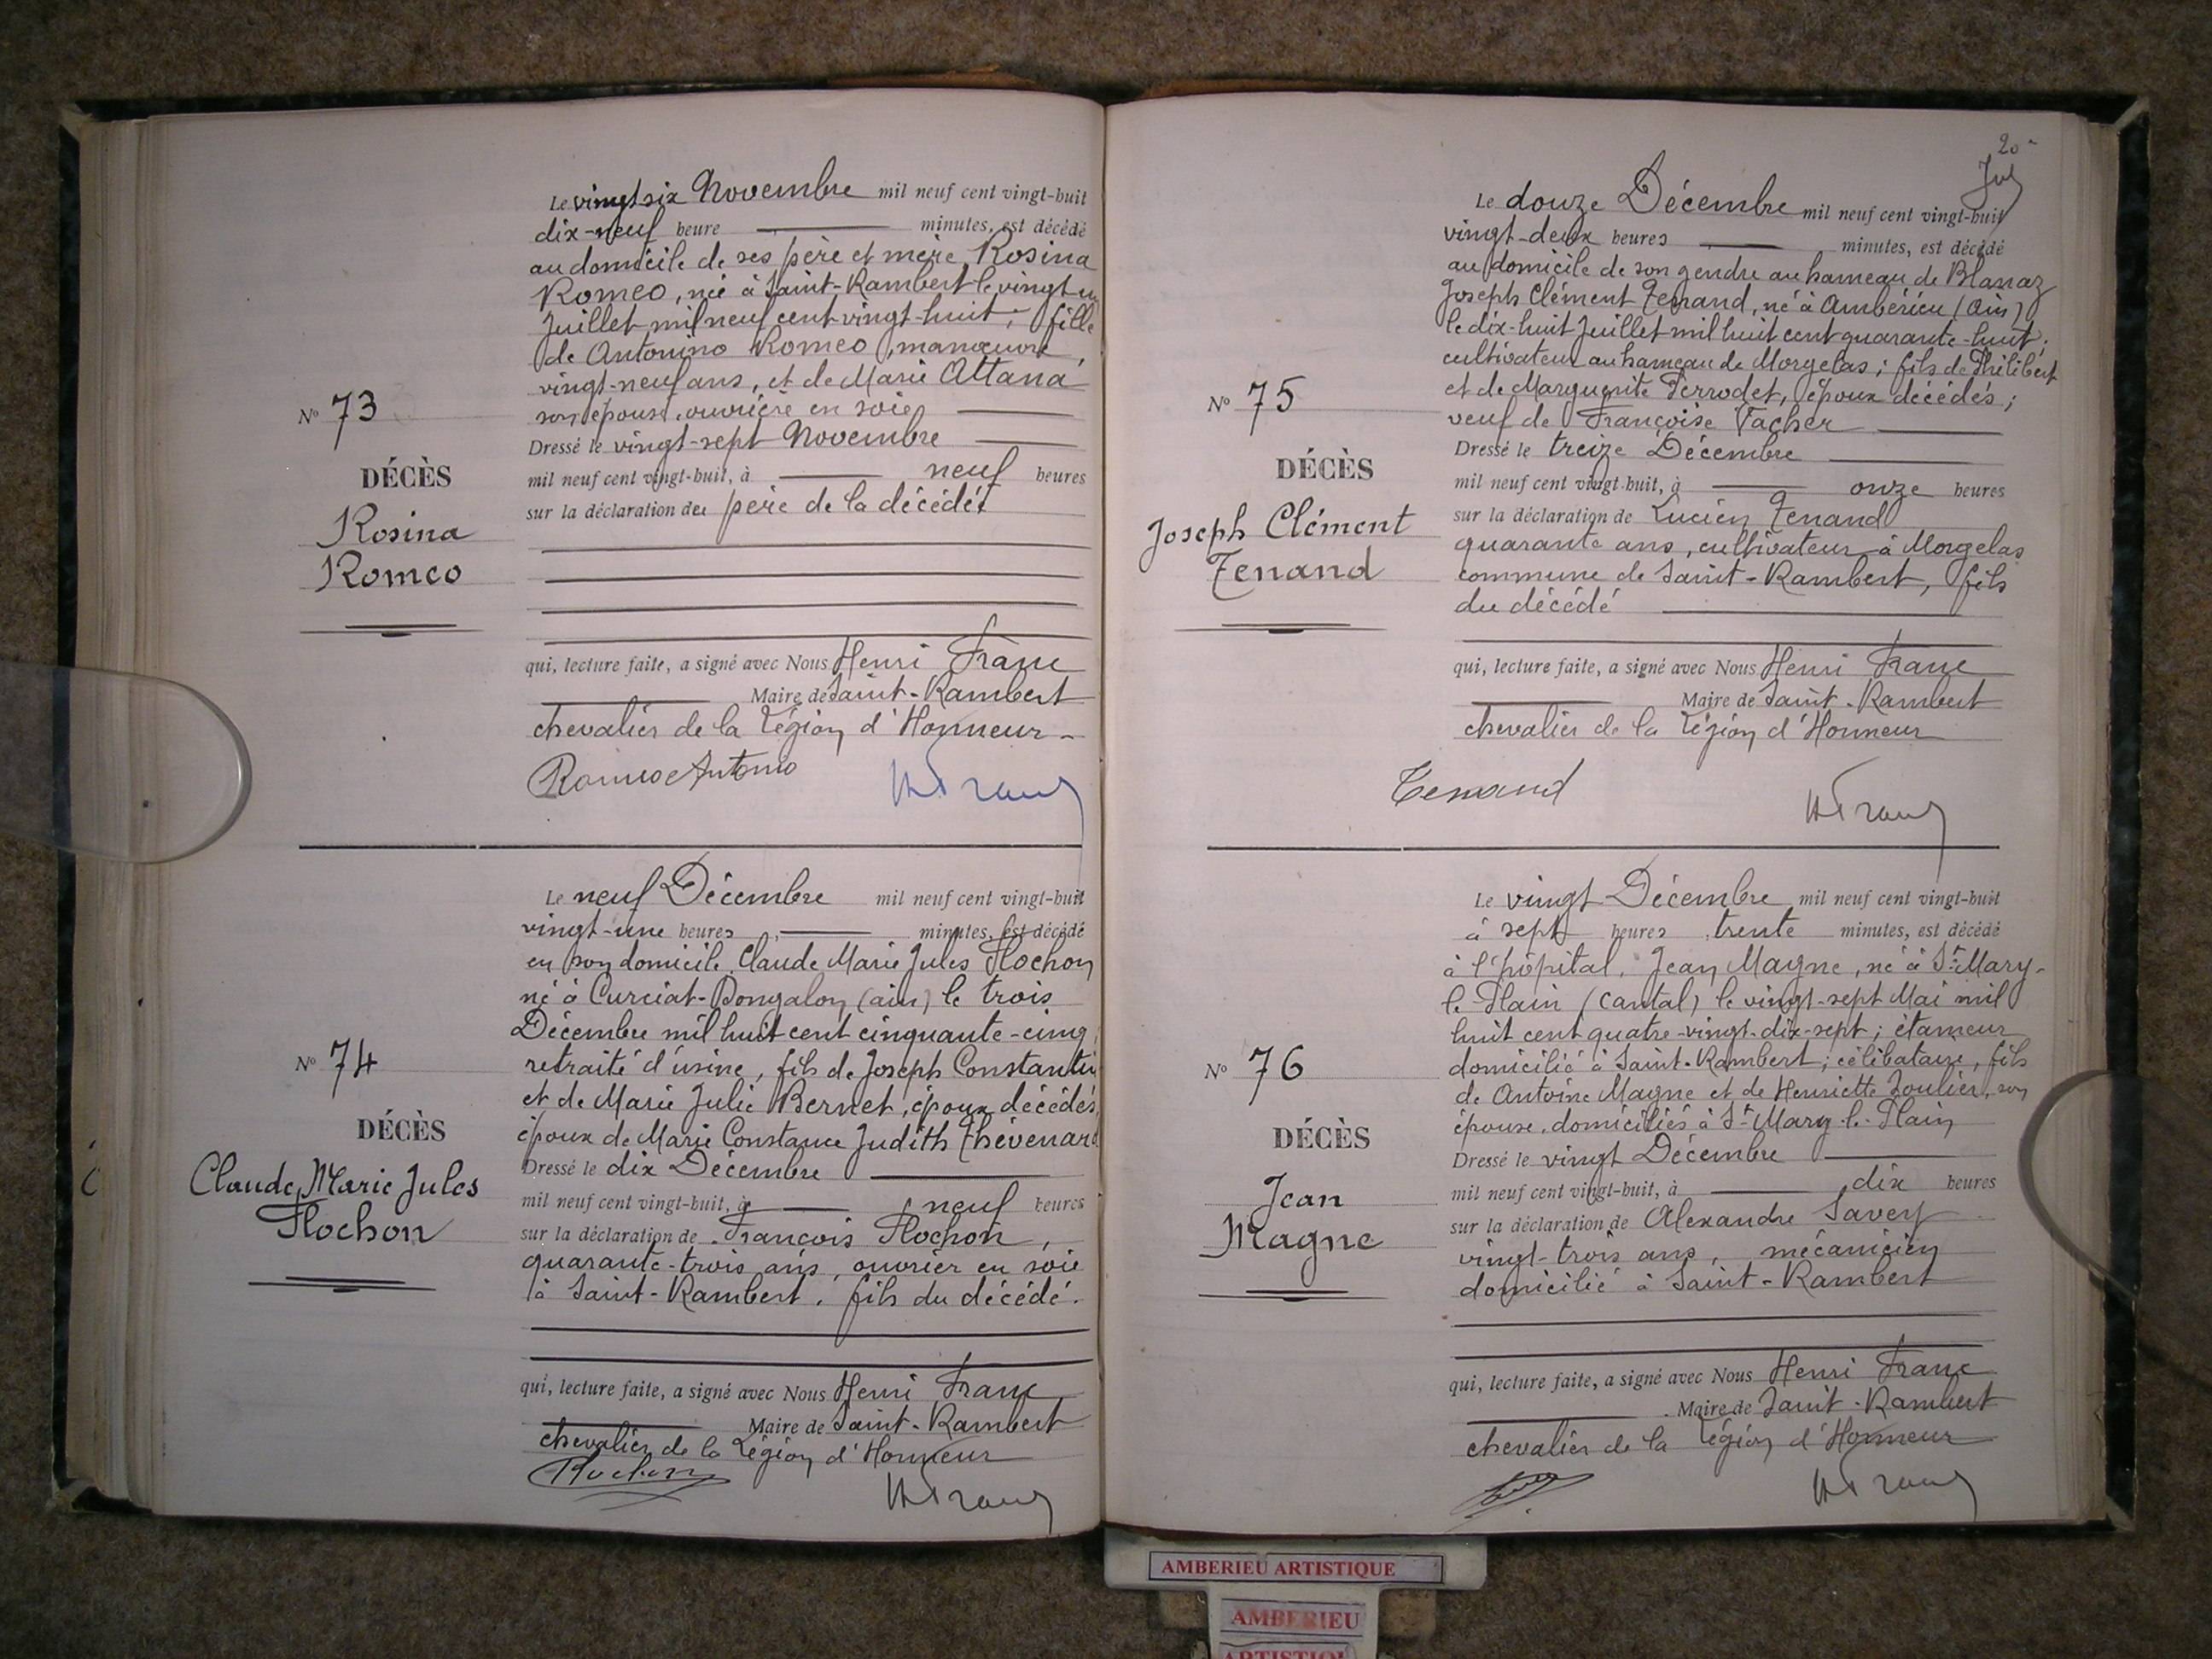 Le vingt six Novembre mil neuf cent vingt-huit
dix-neuf heure minutes, est décédé
au domicile de ses père et mère, Rosina
Romeo, née à Saint-Rambert le vingt un
Juillet mil neuf cent vingt-huit; fille
de Antonino Romeo, manœuvre,
vingt-neuf ans, et de Marie Attana
son épouse, ouvrière en soie
N° 73
Dressé le vingt-sept Novembre
DÉCÈS
mil neuf cent vingt-huit, à neuf heures
sur la déclaration du père de la décédée
Rosina
Romeo
qui, lecture faite, a signé avec Nous Henri Franc
Maire de Saint-Rambert
chevalier de la Légion d'Honneur
Romeo Antonio
HFranc
Le neuf Décembre mil neuf cent vingt-huit
vingt-une heures minutes, est décédé
en son domicile, Claude Marie Jules Plochon
né à Curciat-Dongalon (ain) le trois
Décembre mil huit cent cinquante-cinq;
retraité d'usine, fils de Joseph Constantin
et de Marie Julie Bernet, époux décédés,
époux de Marie Constance Judith Thévenard
N° 74
DÉCÈS
Dressé le dix Décembre
Claude Marie Jules
Plochon
mil neuf cent vingt-huit, à neuf heures
sur la déclaration de François Plochon,
quarante-trois ans, ouvrier en soie
à Saint-Rambert, fils du décédé.
qui, lecture faite, a signé avec Nous Henri Franc
Maire de Saint-Rambert
chevalier de la Légion d'Honneur
Plochon
HFranc
20
Le douze Décembre mil neuf cent vingt-huit
vingt-deux heures minutes, est décédé
au domicile de son gendre au hameau de Blanaz
Joseph Clément Tenand, né à Ambérieu (Ain)
le dix-huit Juillet mil huit cent quarante-huit;
cultivateur au hameau de Morgelas; fils de Philibert
et de Marguerite Perrodet, époux décédés;
veuf de Françoise Vacher
N° 75
Dressé le treize Décembre
DÉCÈS
mil neuf cent vingt-huit, à onze heures
Joseph Clément
Tenand
sur la déclaration de Lucien Tenand
quarante ans, cultivateur à Morgelas
commune de Saint-Rambert, fils
du décédé
qui, lecture faite, a signé avec Nous Henri Franc
Maire de Saint-Rambert
chevalier de la Légion d'Honneur
Tenand
HFranc
Le vingt Décembre mil neuf cent vingt-huit
à sept heures trente minutes, est décédé
à l'hôpital, Jean Magne, né à St Mary-
le-Plain (Cantal) le vingt-sept Mai mil
huit cent quatre-vingt-dix-sept; étameur
domicilié à Saint-Rambert; célibataire, fils
de Antoine Magne et de Henriette Joulier, son
épouse, domiciliés à St Mary-le-Plain
N° 76
DÉCÈS
Dressé le vingt Décembre
Jean
Magne
mil neuf cent vingt-huit, à dix heures
sur la déclaration de Alexandre Savey
vingt-trois ans, mécanicien
domicilié à Saint-Rambert
qui, lecture faite, a signé avec Nous Henri Franc
Maire de Saint-Rambert
chevalier de la Légion d'Honneur
HFranc
AMBERIEU ARTISTIQUE
AMBERIEU
ARTISTIQUE